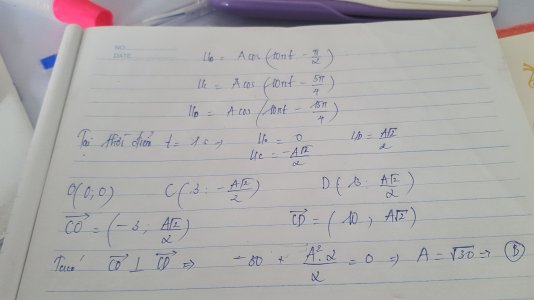 NO.
DATE
u₀ = A cos (10πt − π/2)
u_C = A cos (10πt − 5π/4)
u_D = A cos (10πt − 15π/4)
Tại thời điểm t = 1s ⇒ u₀ = 0 u_D = A√2/2
u_C = −A√2/2
O(0; 0) C(3; −A√2/2) D(13; A√2/2)
CO = (−3; A√2/2) CD = (10; A√2)
Ta có CO ⊥ CD ⇒ −30 + A².2/2 = 0 ⇒ A = √30 ⇒ B